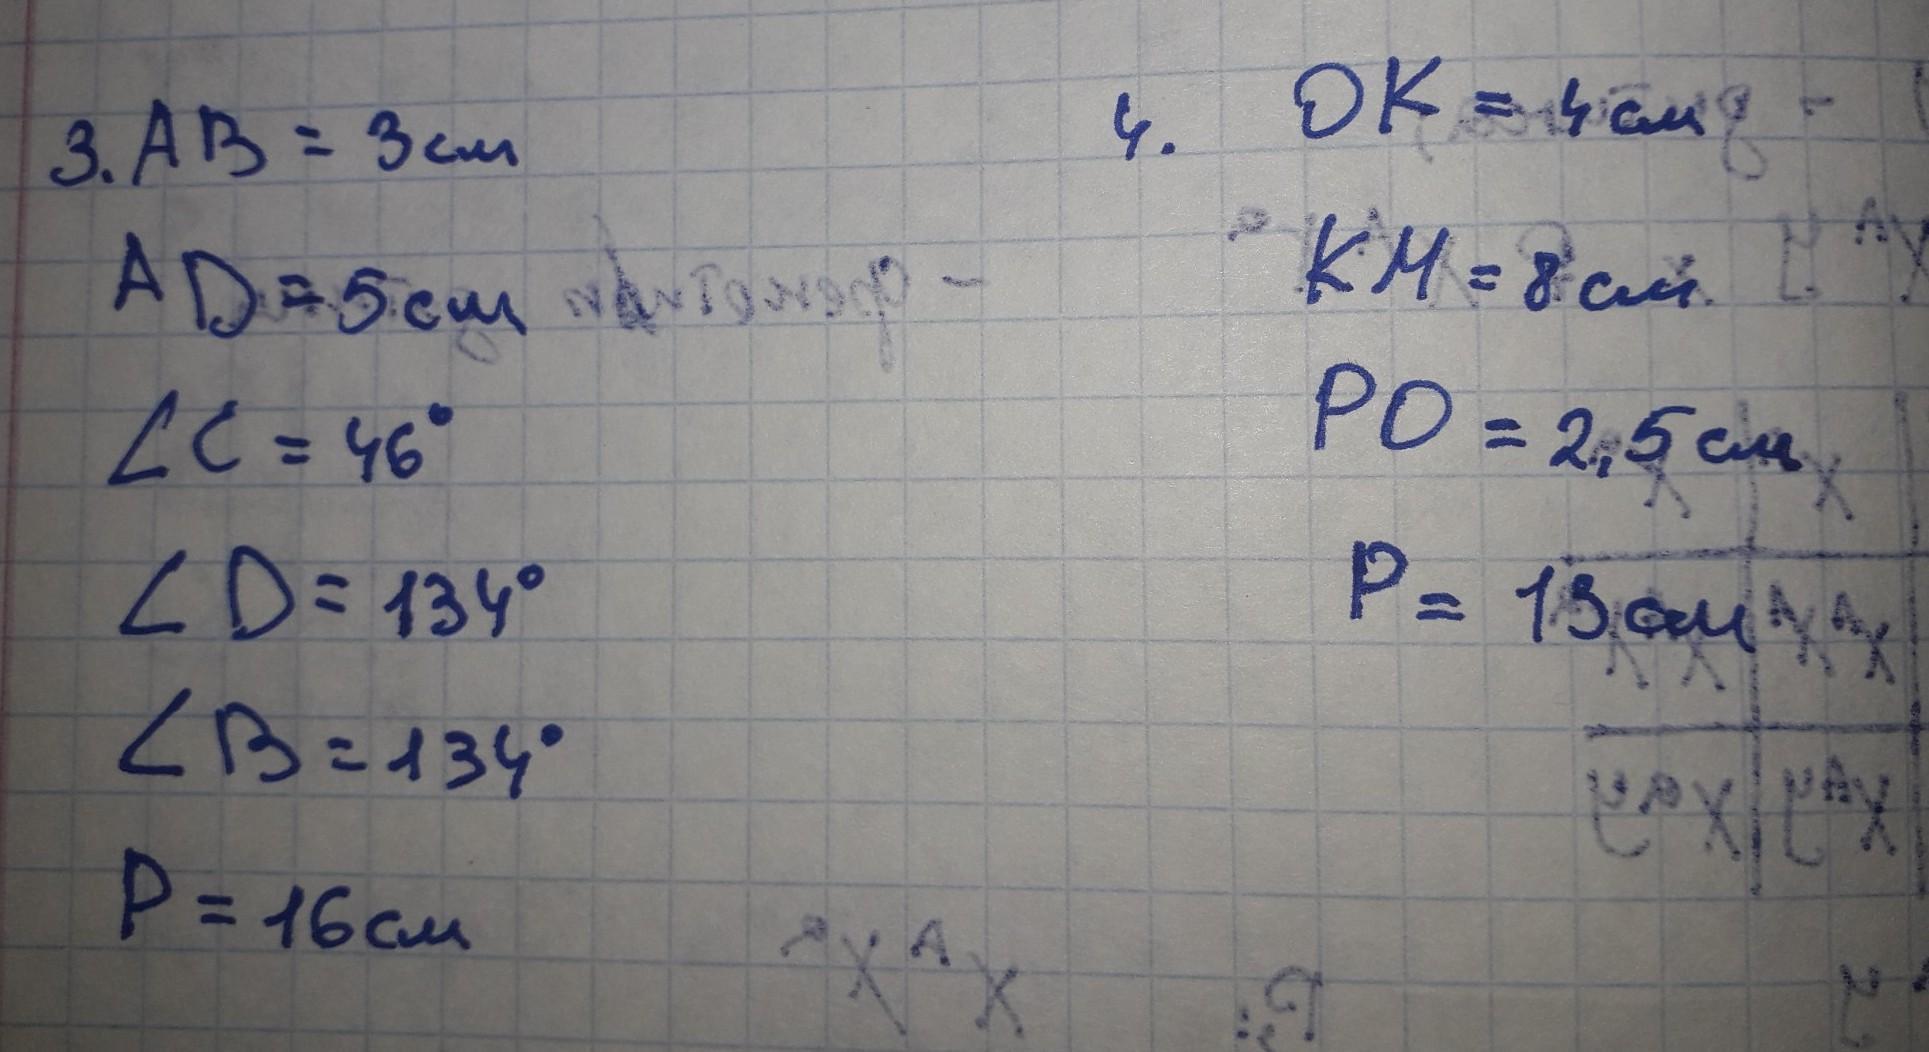 3. AB = 3 см
AD = 5 см
∠C = 46°
∠D = 134°
∠B = 134°
P = 16 см
4. OK = 4 см
KM = 8 см
PO = 2,5 см
P = 13 см